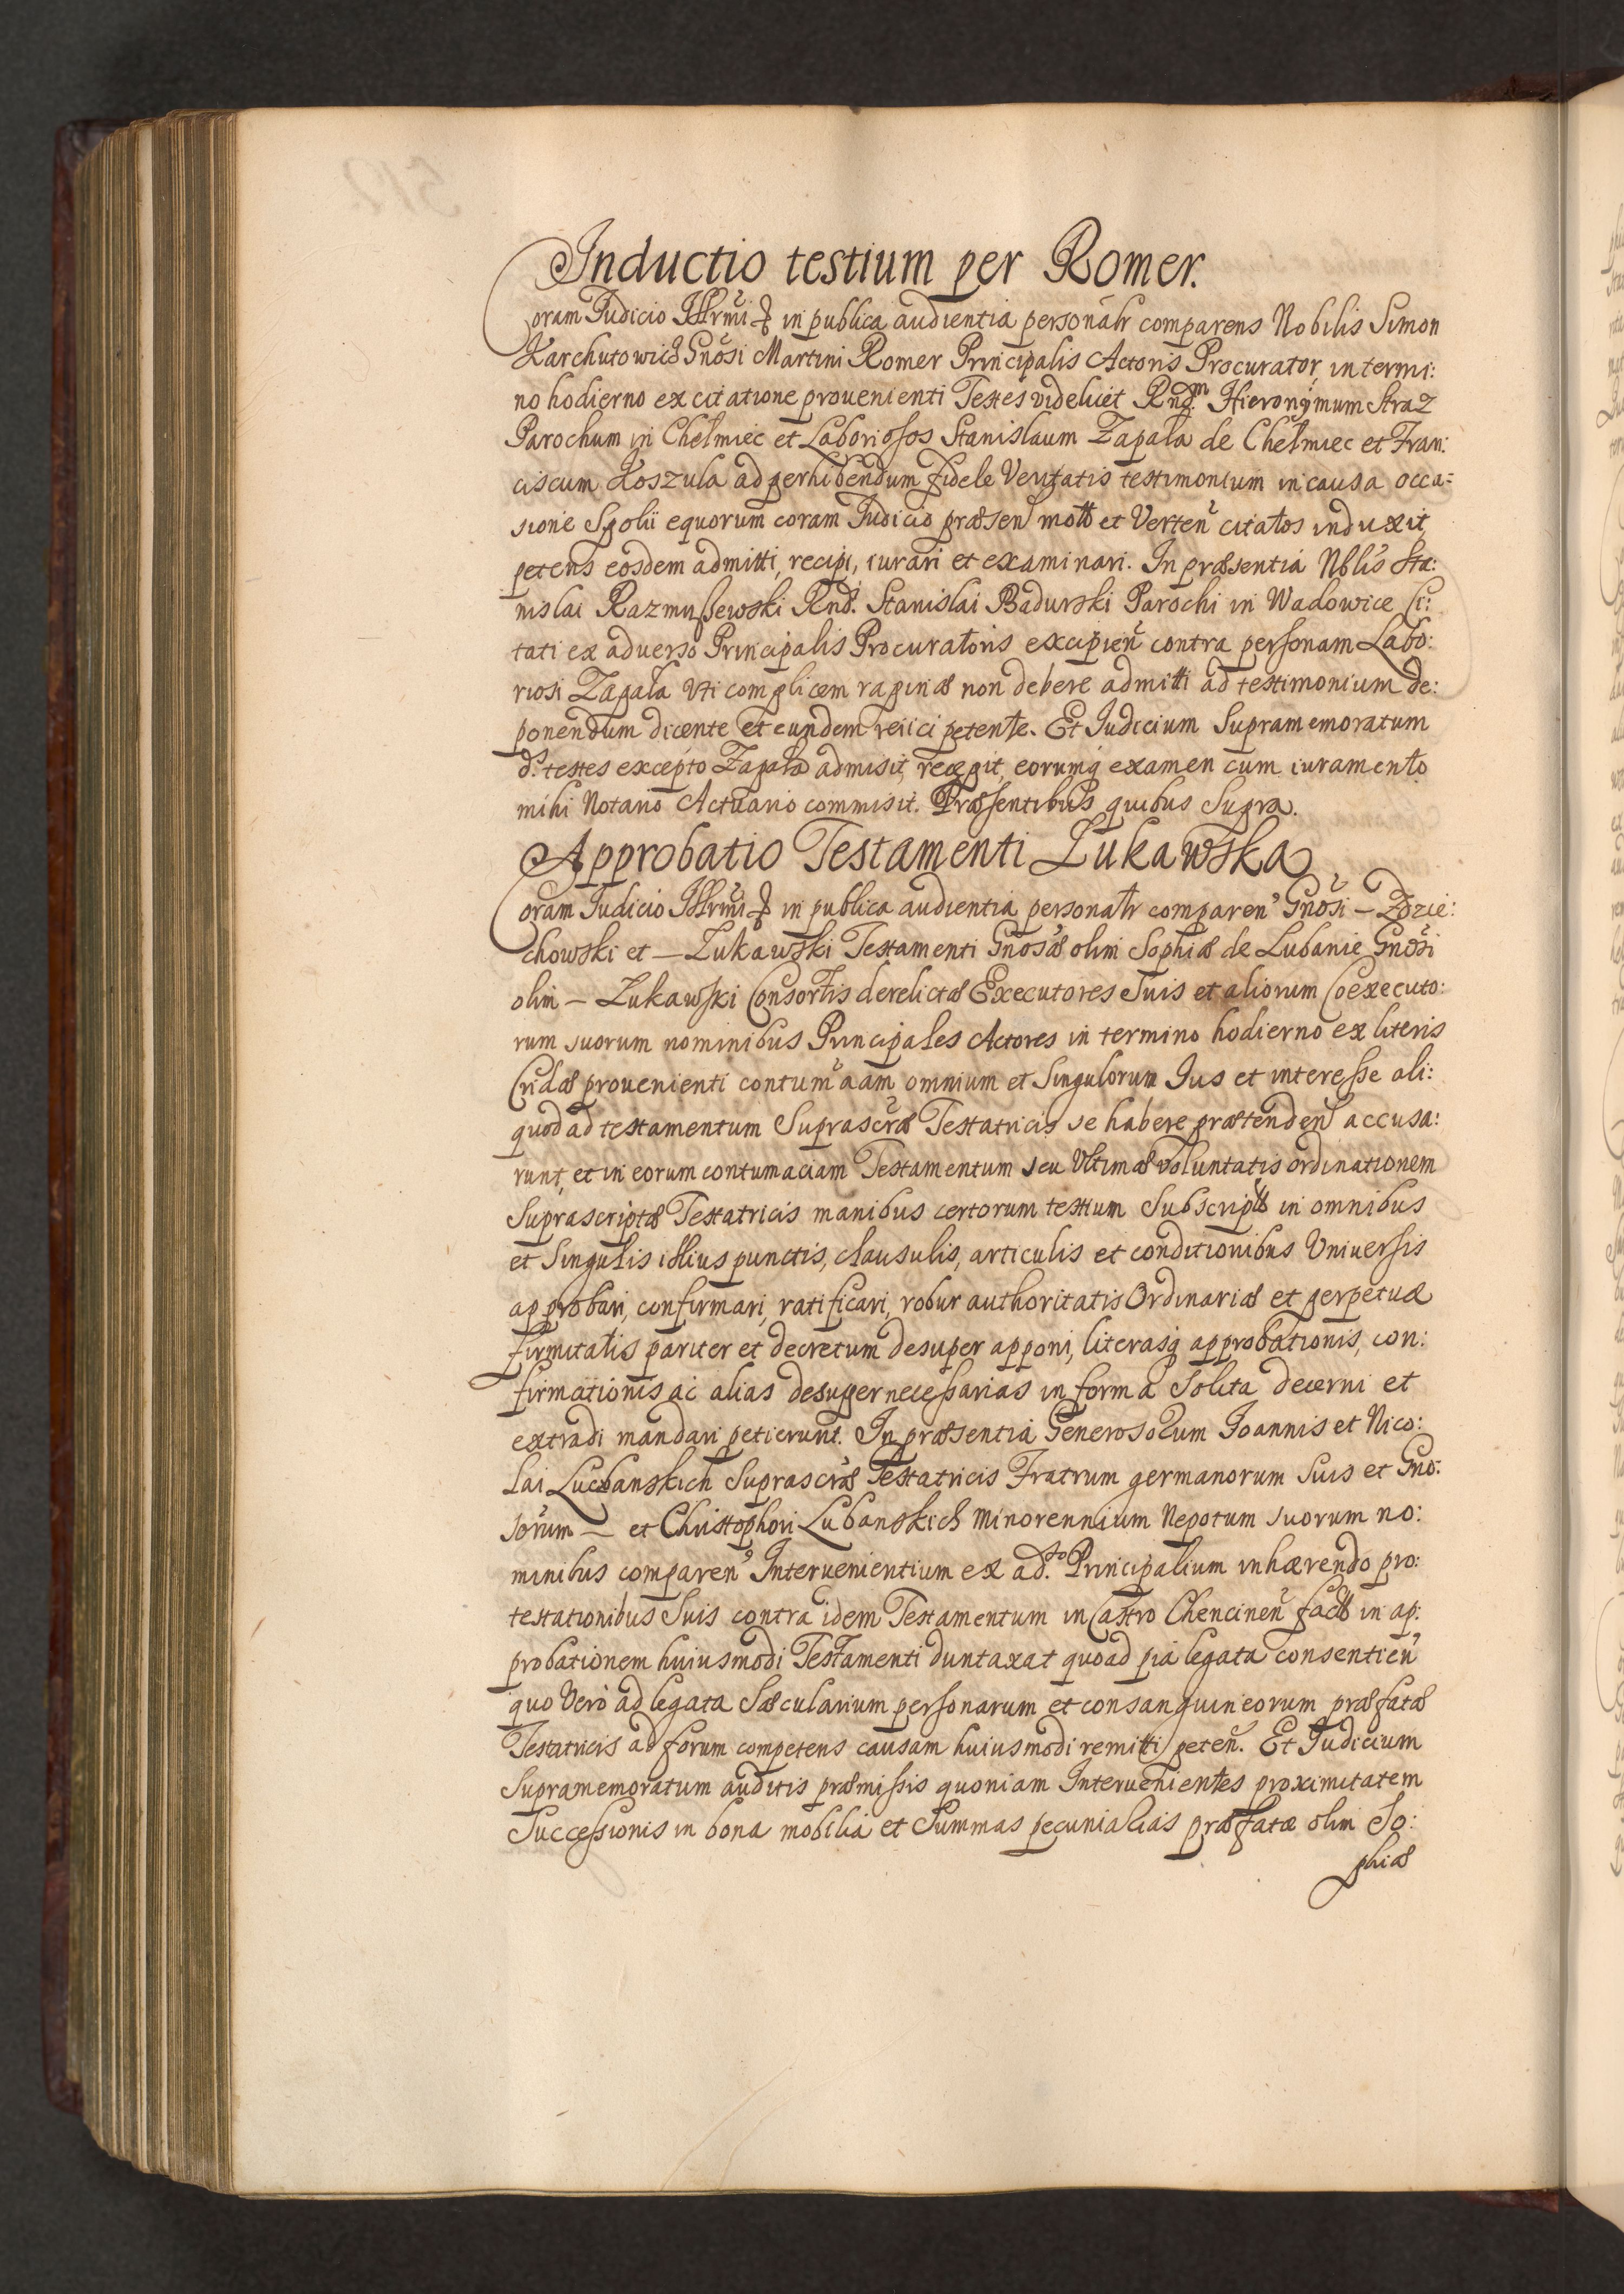 Inductio testium per Romer.
Coram Iudicio Illrmi & in publica audientia personalr comparens Nobilis Simon
Karchutowicz Gnosi Martini Romer Principalis Actoris Procurator, in termi:
no hodierno ex citatione prouenienti Testes videlicet Rnd.m Hieronymum Straz
Parochum in Chełmiec et Laboriosos Stanislaum Zapała de Chełmiec et Fran:
ciscum Koszula ad perhibendum fidele Veritatis testimonium in causa occa=
sione Spolii equorum coram Iudicio præsen mott et Verten citatos induxit,
petens eosdem admitti, recipi, iurari et examinari. In præsentia Nblis Sta:
nislai Razmussewski Rnd. Stanislai Badurski Parochi in Wadowice Ci:
tati ex aduerso Principalis Procuratoris excipien contra personam Labo:
riosi Zapała Uti complicem rapinæ non debere admitti ad testimonium de:
ponendum dicente et eundem reiici petente. Et Iudicium Supramemoratum
d.s testes excepto Zapała admisit, recepit, eorumq examen cum iuramento
mihi Notario Actuario commisit. Præsentibus quibus Supra.
Approbatio Testamenti Łukawska
Coram Iudicio Illrmi & in publica audientia personalr comparen Gnosi — Zdzie:
chowski et — Łukawski Testamenti Gnosæ olim Sophiæ de Lubanie Gnosi
olim — Łukawski Consortis derelictæ Executores Suis et aliorum Coexecuto:
rum suorum nominibus Principales Actores in termino hodierno ex literis
Cridæ prouenienti contum aam omnium et Singulorum Ius et interesse ali:
quod ad testamentum Suprascræ Testatricis se habere prætenden accusa:
runt, et in eorum contumaciam Testamentum seu Ultimæ voluntatis ordinationem
Suprascriptæ Testatricis manibus certorum testium Subscriptt in omnibus
et Singulis illius punctis, clausulis, articulis et conditionibus Uniuersis
approbari, confirmari, ratificari, robur authoritatis Ordinariæ et perpetuæ
firmitatis pariter et decretum desuper apponi, literasq approbationis, con:
firmationis ac alias desuper necessarias in forma Solita decerni et
extradi mandari petierunt. In præsentia Generosorum Ioannis et Nico:
lai Lucbanskich Suprascræ Testatricis Fratrum germanorum Suis et Gno:
sorum — et Christophori Lubanskich Minorennium Nepotum suorum no:
minibus comparen Interuenientium ex ad.to Principalium inhærendo pro:
testationibus Suis contra idem Testamentum in Castro Chencinen factt in ap:
probationem huiusmodi Testamenti duntaxat quoad pia legata consentien
quo Vero ad legata Sæcularium personarum et consanguineorum præfatæ
Testatricis ad forum competens causam huiusmodi remitti peten. Et Iudicium
Supramemoratum auditis præmissis quoniam Interuenientes proximitatem
Successionis in bona mobilia et Summas pecuniarias præfatæ olim So:
phiæ